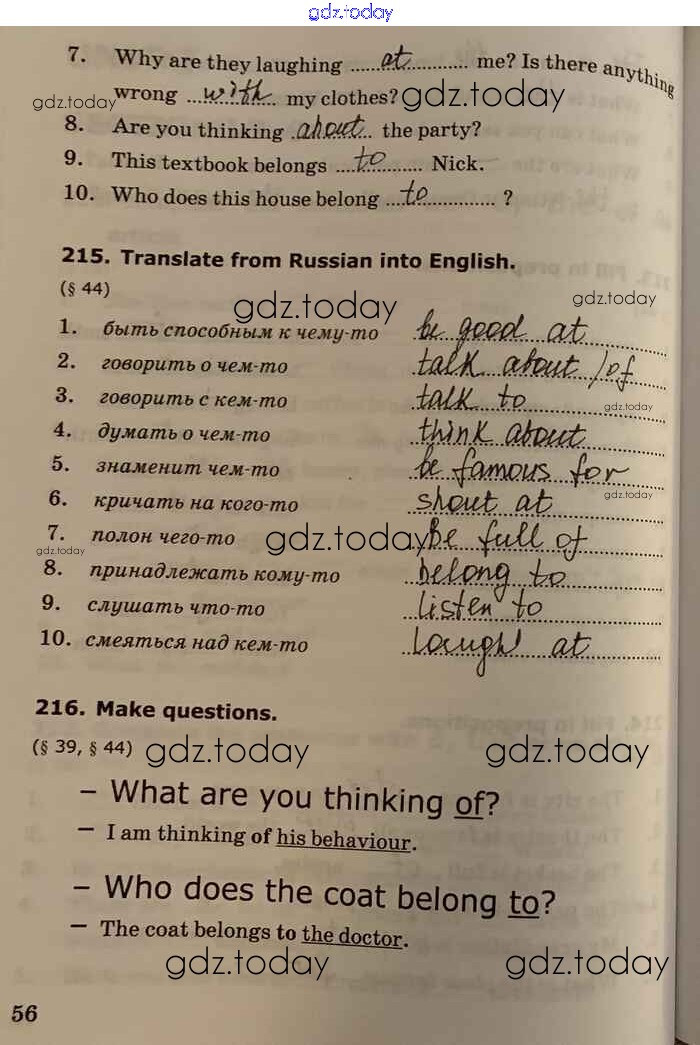 gdz.today
7. Why are they laughing ....at............ me? Is there anything
wrong ...with.... my clothes? gdz.today
gdz.today
8. Are you thinking .about.. the party?
9. This textbook belongs ....to.......... Nick.
10. Who does this house belong ...to.............. ?
215. Translate from Russian into English.
(§ 44)
gdz.today gdz.today
1. быть способным к чему-то be good at
2. говорить о чем-то talk about /of
3. говорить с кем-то talk to
gdz.today
4. думать о чем-то think about
5. знаменит чем-то be famous for
6. кричать на кого-то shout at
gdz.today
7. полон чего-то be full of
gdz.today gdz.today
8. принадлежать кому-то belong to
9. слушать что-то listen to
10. смеяться над кем-то laugh at
216. Make questions.
(§ 39, § 44) gdz.today gdz.today
– What are you thinking of?
– I am thinking of his behaviour.
– Who does the coat belong to?
– The coat belongs to the doctor.
gdz.today gdz.today
56